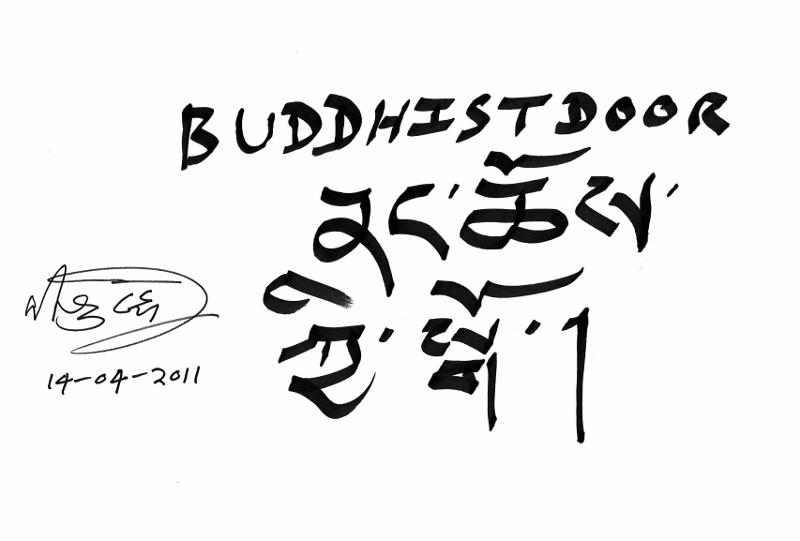 BUDDHISTDOOR
ནང་ཆོས་
ཀྱི་སྒོ།
14-04-2011